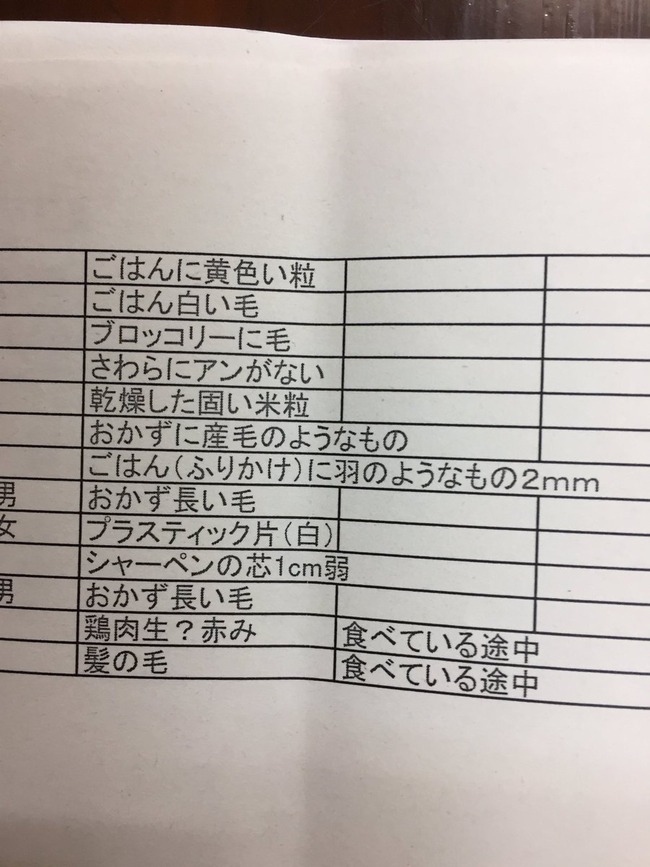 ごはんに黄色い粒
ごはん白い毛
ブロッコリーに毛
さわらにアンがない
乾燥した固い米粒
おかずに産毛のようなもの
ごはん(ふりかけ)に羽のようなもの2mm
男 おかず長い毛
女 プラスティック片(白)
シャーペンの芯1cm弱
男 おかず長い毛
鶏肉生?赤み 食べている途中
髪の毛 食べている途中